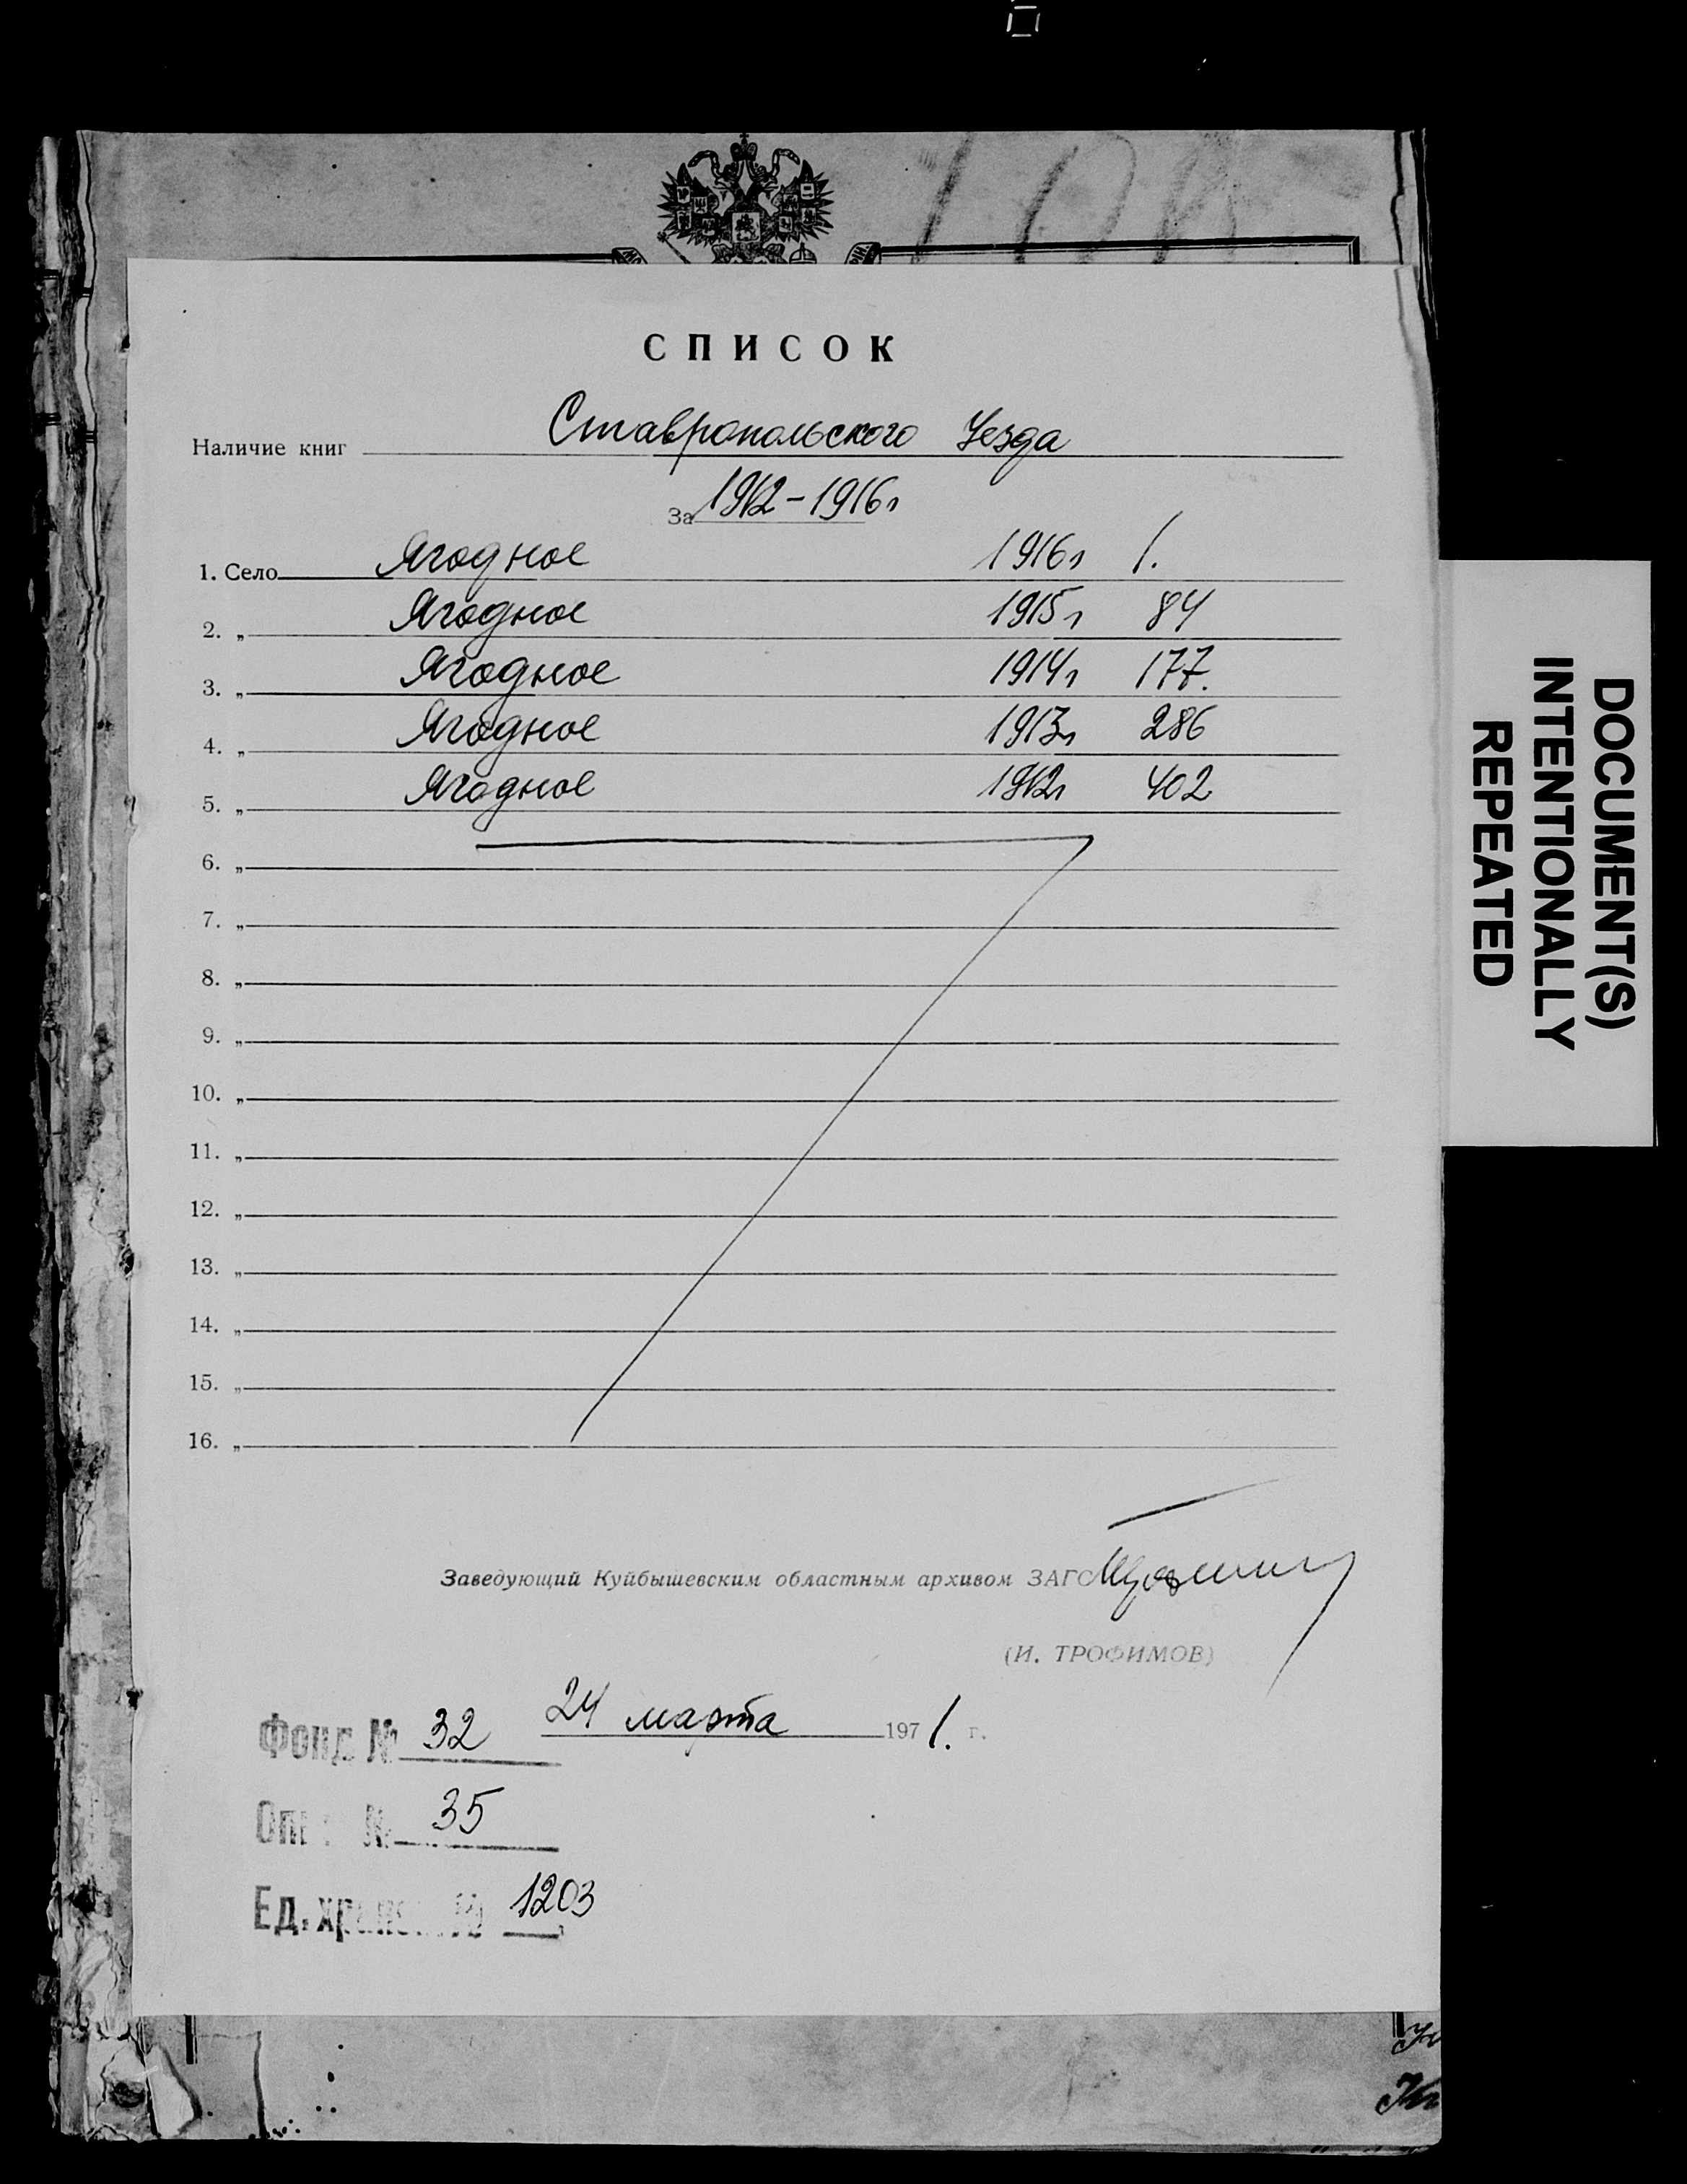 СПИСОК
Наличие книг Ставропольского Уезда
За 1912-1916г
1. Село Ягодное 1916г 1.
2. „ Ягодное 1915г 84
3. „ Ягодное 1914г 177.
4. „ Ягодное 1913г 286
5. „ Ягодное 1912г 402
6. „
7. „
8. „
9. „
10. „
11. „
12. „
13. „
14. „
15. „
16. „
Заведующий Куйбышевским областным архивом ЗАГС
(И. ТРОФИМОВ)
24 марта 1971. г.
Фонд № 32
№ 35
Ед. 1203
DOCUMENT(S)
INTENTIONALLY
REPEATED